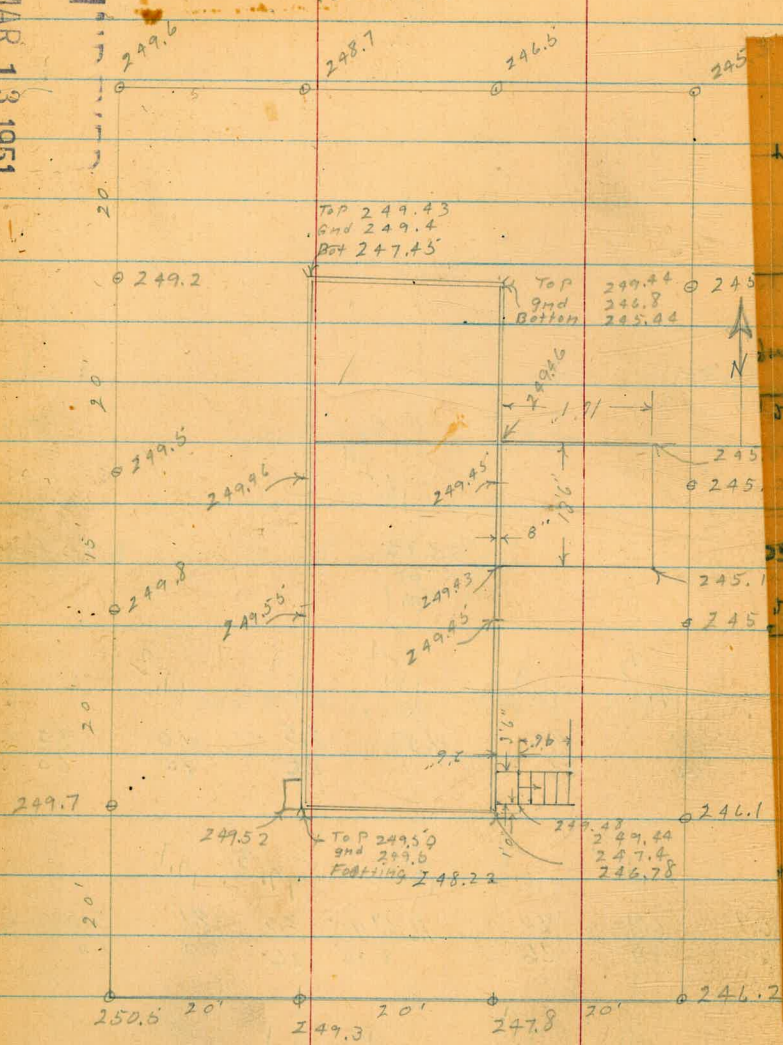 MAR 13 1951
249.6
248.7
246.5
245.
20
Top 249.43
Gnd 249.4
Bot 247.45
249.2
Top 249.44
gnd 246.8
Bottom 245.44
245
N
20'
249.46
249.5
249.96
249.45
245
245.
15'
8"
249.8
249.55
249.43
249.45
245.1
245
20'
249.7
249.52
Top 249.50
Footting 248.22
249.48
249.44
247.4
246.78
246.1
20'
250.5
20'
249.3
20'
247.8
20'
246.2